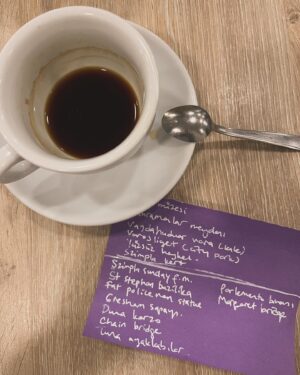 müzesi
kahramanlar meydanı
Vajdahunyad vara (kale)
Varosliget (city park)
yüzsüz heykel
Szimpla kert
Szimpla sunday f.m.
St stephan bazilika
Fat policeman statue
Gresham sarayı
Duna korzo
Chain bridge
tuna ayakkabılar
Parlemento binası
Margaret bridge